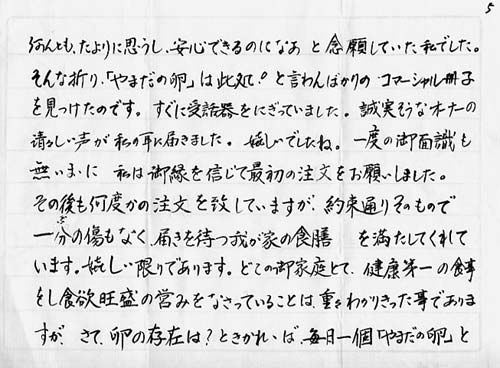 5
何んとも、たよりに思うし、安心できるのになあ と念願していた私でした。
そんな折り、「やまだの卵」は此処!! と言わんばかりの コマーシャル冊子
を見つけたのです。すぐに受話器をにぎっていました。誠実そうなオーナーの
清々しい声が 私の耳に届きました。嬉しいでしたね。一度の御面識も
無いまゝに 私は御縁を信じて最初の注文をお願いしました。
その後も何度かの注文を致していますが、約束通りそのもので
一分の傷もなく、届きを待つ我が家の食膳 を満たしてくれて
います。嬉しい限りであります。どこの御家庭とて、健康第一の食事
をし食欲旺盛の営みをなさっていることは、重々わかりきった事でありま
すが、さて、卵の存在は?ときかれゝば、毎日一個「やまだの卵」と